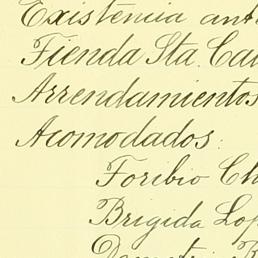 Existencia ant
Tienda Sta. Cat
Arrendamientos
Acomodados:
Toribio Ch
Brigida Lop